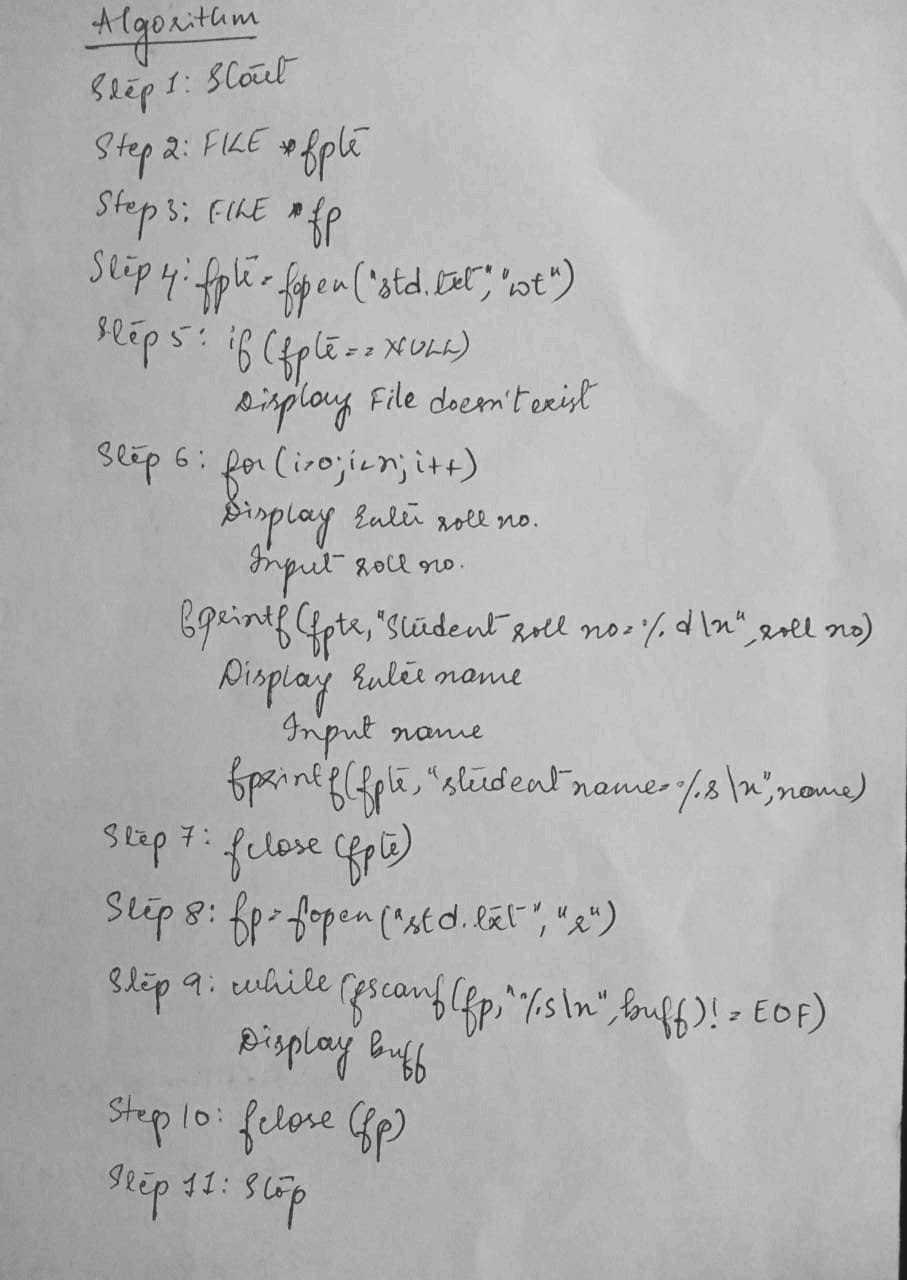 Algorithm
Step 1: Start
Step 2: FILE *fptr
Step 3: FILE *fp
Step 4: fptr = fopen("std.txt", "wt")
Step 5: if (fptr == NULL)
Display File doesn't exist
Step 6: for (i=0; i<n; i++)
Display Enter roll no.
Input roll no.
fprintf (fptr, "Student roll no = %d\n", roll no)
Display Enter name
Input name
fprintf (fptr, "student name = %s\n", name)
Step 7: fclose (fptr)
Step 8: fp = fopen("std.txt", "r")
Step 9: while (fscanf (fp, "%s\n", buff) != EOF)
Display buff
Step 10: fclose (fp)
Step 11: Stop